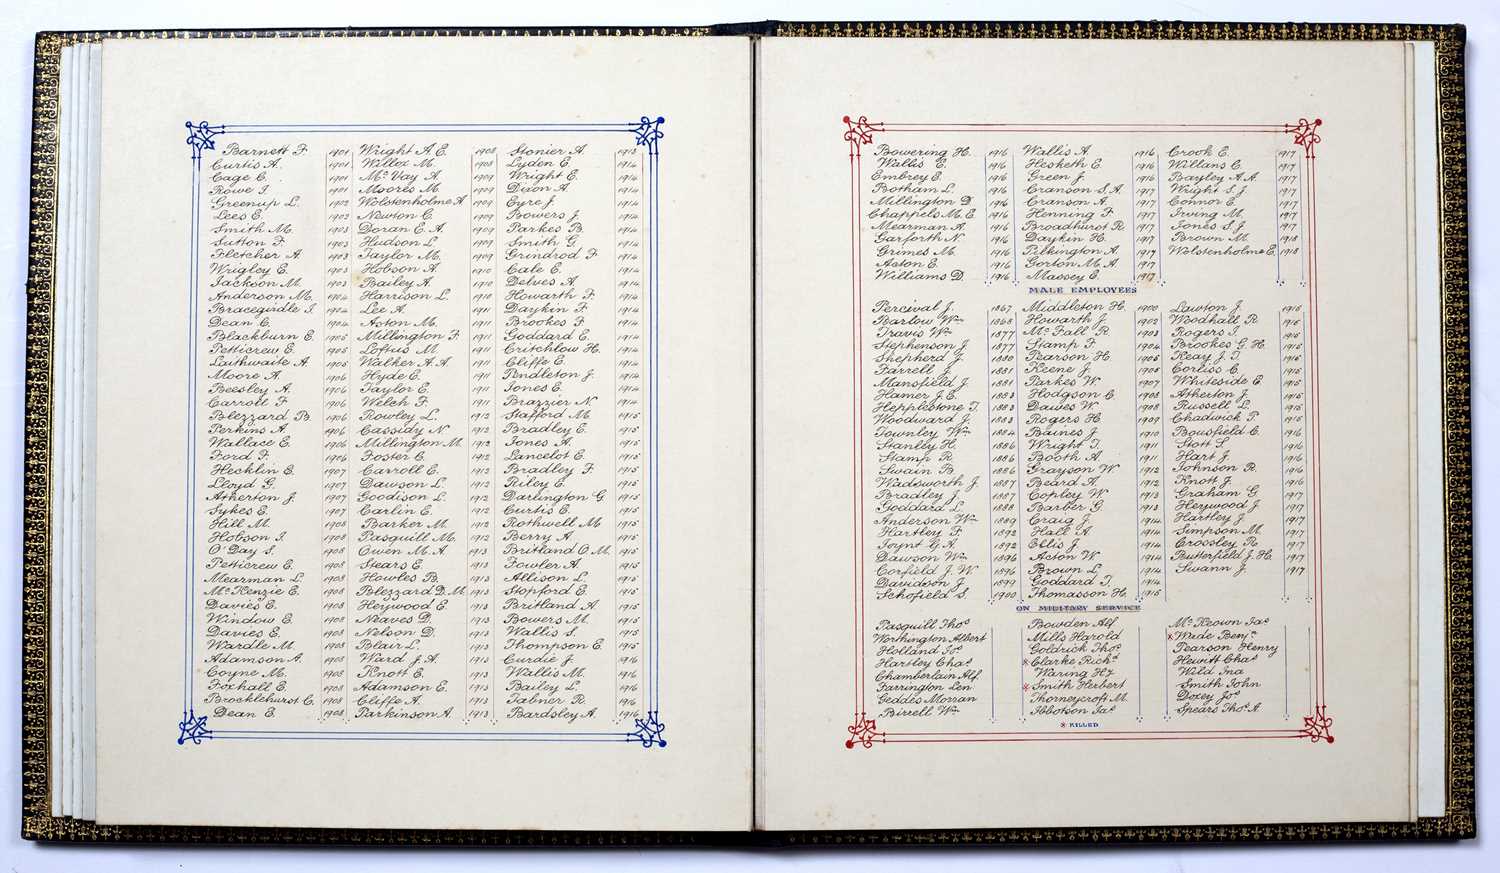 Barnett F. 1901
Curtis A. 1901
Cage E. 1901
Rowe I. 1901
Greenup L. 1902
Lees E. 1902
Smith M. 1903
Sutton F. 1903
Fletcher A 1903
Wrigley E. 1903
Jackson M. 1903
Anderson M. 1904
Bracegirdle I. 1904
Dean C. 1904
Blackburn E. 1905
Petticrew E. 1905
Laithwaite A 1905
Moore A. 1906
Beesley A. 1906
Carroll F 1906
Blezzard B. 1906
Perkins A 1906
Wallace E. 1906
Ford F. 1906
Hecklin E. 1907
Lloyd G. 1907
Atherton J. 1907
Sykes E. 1907
Hill M. 1908
Hobson I. 1908
O'Day S. 1908
Petticrew E. 1908
Mearman L. 1908
McKenzie E. 1908
Davies E. 1908
Window E. 1908
Davies E. 1908
Wardle M 1908
Adamson A. 1908
Coyne M. 1908
Foxhall E. 1908
Brocklehurst C. 1908
Dean E. 1908
Wright A. E. 1908
Willox M. 1908
McVay A 1909
Moores M. 1909
Wolstenholme A 1909
Newton C. 1909
Doran E. A. 1909
Hudson L. 1909
Taylor M. 1909
Hobson A 1910
Bailey A. 1910
Harrison L. 1910
Lee A. 1910
Aston M. 1911
Millington F. 1911
Loftus M 1911
Walker A. A. 1911
Hyde E. 1911
Taylor E. 1911
Welch F 1911
Rowley L. 1912
Cassidy N. 1912
Millington M. 1912
Foster C. 1912
Carroll E. 1912
Dawson L. 1912
Goodison L. 1912
Carlin E. 1912
Barker M. 1912
Pasquill M. 1912
Owen M. A. 1913
Stears E. 1913
Howles B. 1913
Blezzard D. M. 1913
Heywood E. 1913
Neaves D. 1913
Nelson D. 1913
Blair L. 1913
Ward J. A. 1913
Knott E. 1913
Adamson E. 1913
Cliffe A. 1913
Parkinson A. 1913
Stonier A. 1913
Lyden E. 1914
Wright E. 1914
Dixon A. 1914
Eyre J. 1914
Bowers J. 1914
Parkes B. 1914
Smith G. 1914
Grindrod F. 1914
Cale E. 1914
Delves A. 1914
Howarth F. 1914
Daykin F. 1914
Brookes F 1914
Goddard E. 1914
Critchlow H. 1914
Cliffe E. 1914
Pendleton J. 1914
Jones E. 1914
Brazzier N. 1914
Stafford M. 1915
Bradley E. 1915
Jones A. 1915
Lancelot E. 1915
Bradley F. 1915
Riley E. 1915
Darlington G 1915
Curtis E. 1915
Rothwell M 1915
Berry A. 1915
Britland O. M. 1915
Fowler A. 1915
Allison L. 1915
Stopford E. 1915
Britland A. 1915
Bowers M. 1915
Wallis S. 1915
Thompson E. 1915
Curdie J. 1916
Wallis M. 1916
Bailey L. 1916
Tabner R. 1916
Bardsley A. 1916
Bowering H. 1916
Wallis E. 1916
Embrey E. 1916
Botham L. 1916
Millington D 1916
Chappels M. E. 1916
Mearman A. 1916
Garforth N. 1916
Grimes M. 1916
Aston E. 1916
Williams D. 1916
Wallis A. 1916
Hesketh E. 1916
Green J. 1916
Cranson S. A. 1917
Cranson A. 1917
Henning F. 1917
Broadhurst R 1917
Daykin H. 1917
Pilkington A. 1917
Gorton M. A 1917
Massey E. 1917
Crook E. 1917
Willans C. 1917
Bayley A. A. 1917
Wright S. J. 1917
Connor E. 1917
Irving M. 1917
Jones S. J. 1917
Brown M. 1918
Wolstenholme E. 1918
MALE EMPLOYEES
Percival J. 1867
Barlow Wm 1868
Travis Wm 1877
Stephenson J. 1877
Shepherd J. 1880
Farrell J. 1881
Mansfield J. 1881
Hamer J. E. 1883
Hepplestone T. 1883
Woodward J. 1883
Townley Wm 1884
Stanley H. 1886
Stamp R. 1886
Swain B. 1886
Wadsworth J. 1887
Bradley J. 1887
Goddard L. 1888
Anderson Wm 1889
Hartley F. 1892
Joynt G. A. 1892
Dawson Wm 1896
Corfield J. W 1896
Davidson J. 1899
Schofield S. 1900
Middleton H. 1900
Howarth J. 1902
McFall R. 1903
Stamp F. 1904
Pearson H 1905
Keene J. 1905
Parkes W. 1907
Hodgson C 1908
Dawes W. 1908
Rogers H. 1909
Baines J. 1910
Wright T. 1911
Booth A. 1911
Grayson W 1912
Beard A. 1912
Copley W. 1913
Barber G. 1913
Craig J. 1914
Hall A. 1914
Ellis J. 1914
Acton W. 1914
Brown L. 1914
Goddard T. 1914
Thomasson H. 1915
Lawton J. 1915
Woodhall R. 1915
Rogers I. 1915
Brookes G. H. 1915
Keay J. T. 1915
Corliss C. 1915
Whiteside E. 1915
Atherton J. 1915
Russell L. 1915
Chadwick P. 1915
Bousfield C. 1916
Stott S. 1916
Hart J. 1916
Johnson R. 1916
Knott J. 1916
Graham G. 1917
Heywood J. 1917
Hartley J. 1917
Simpson M. 1917
Crossley R. 1917
Butterfield J. H. 1917
Swann J. 1917
ON MILITARY SERVICE
Pasquill Thos
Worthington Albert
Holland Jos
Hartley Chas
Chamberlain Alf.
Farrington Len
Geddes Morran
Birrell Wm
Bowden Alf
Mills Harold
Goldrick Thos
* Clarke Richd
Waring Hy
* Smith Herbert
Thorneycroft M.
Ibbotson Jas
McKeown Jas
* Wade Benjn
Pearson Henry
Hewitt Chas
Wild Ina
Smith John
Doxey Jos
Spears Thos A.
* KILLED